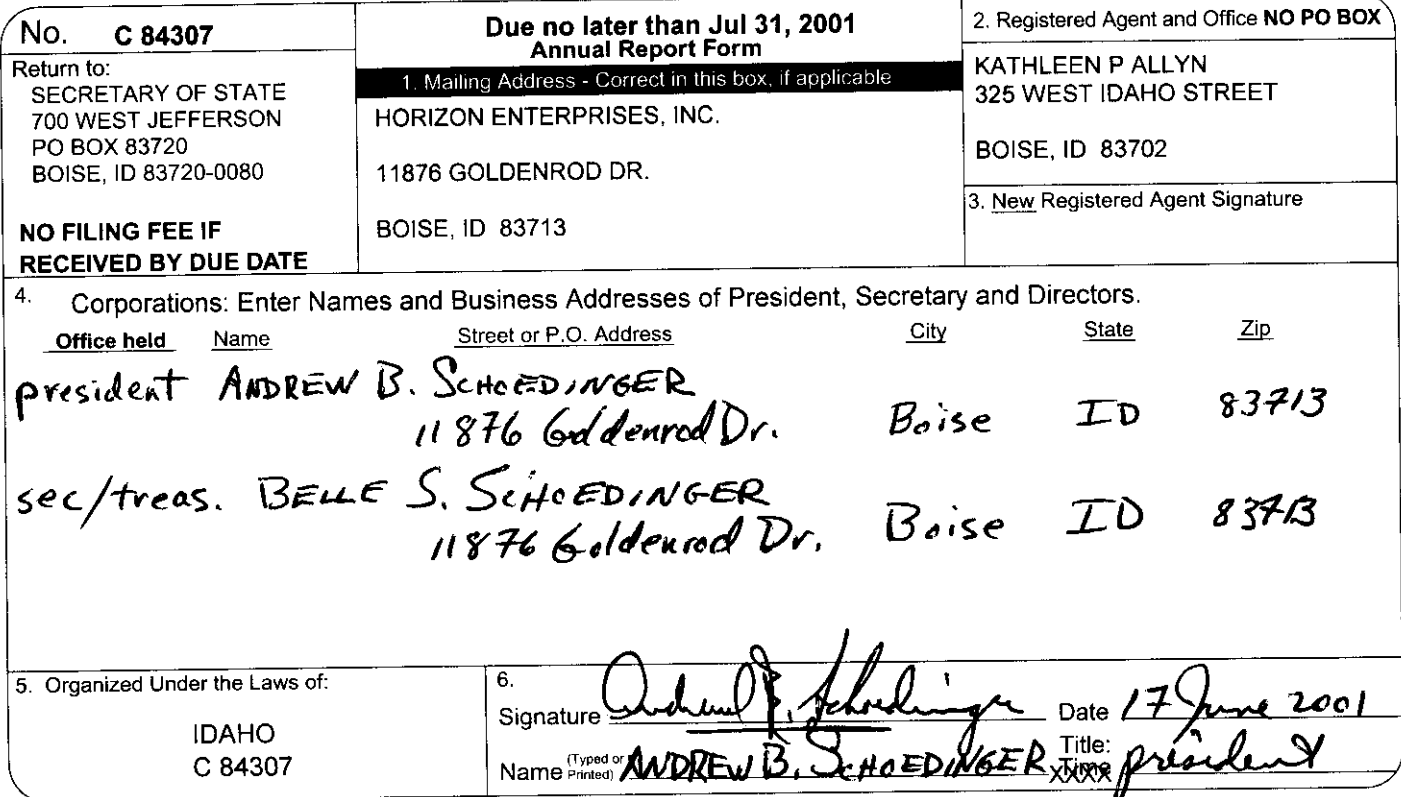 No. C 84307
Return to:
SECRETARY OF STATE
700 WEST JEFFERSON
PO BOX 83720
BOISE, ID 83720-0080
NO FILING FEE IF
RECEIVED BY DUE DATE
Due no later than Jul 31, 2001
Annual Report Form
1. Mailing Address - Correct in this box, if applicable
HORIZON ENTERPRISES, INC.
11876 GOLDENROD DR.
BOISE, ID 83713
2. Registered Agent and Office NO PO BOX
KATHLEEN P ALLYN
325 WEST IDAHO STREET
BOISE, ID 83702
3. New Registered Agent Signature
4. Corporations: Enter Names and Business Addresses of President, Secretary and Directors.
Office held Name Street or P.O. Address City State Zip
president ANDREW B. SCHOEDINGER
11876 Goldenrod Dr. Boise ID 83713
sec/treas. BELLE S. SCHOEDINGER
11876 Goldenrod Dr. Boise ID 83713
5. Organized Under the Laws of:
IDAHO
C 84307
6.
Signature Andrew B. Schoedinger Date 17 June 2001
Name (Typed or Printed) ANDREW B. SCHOEDINGER Title: president